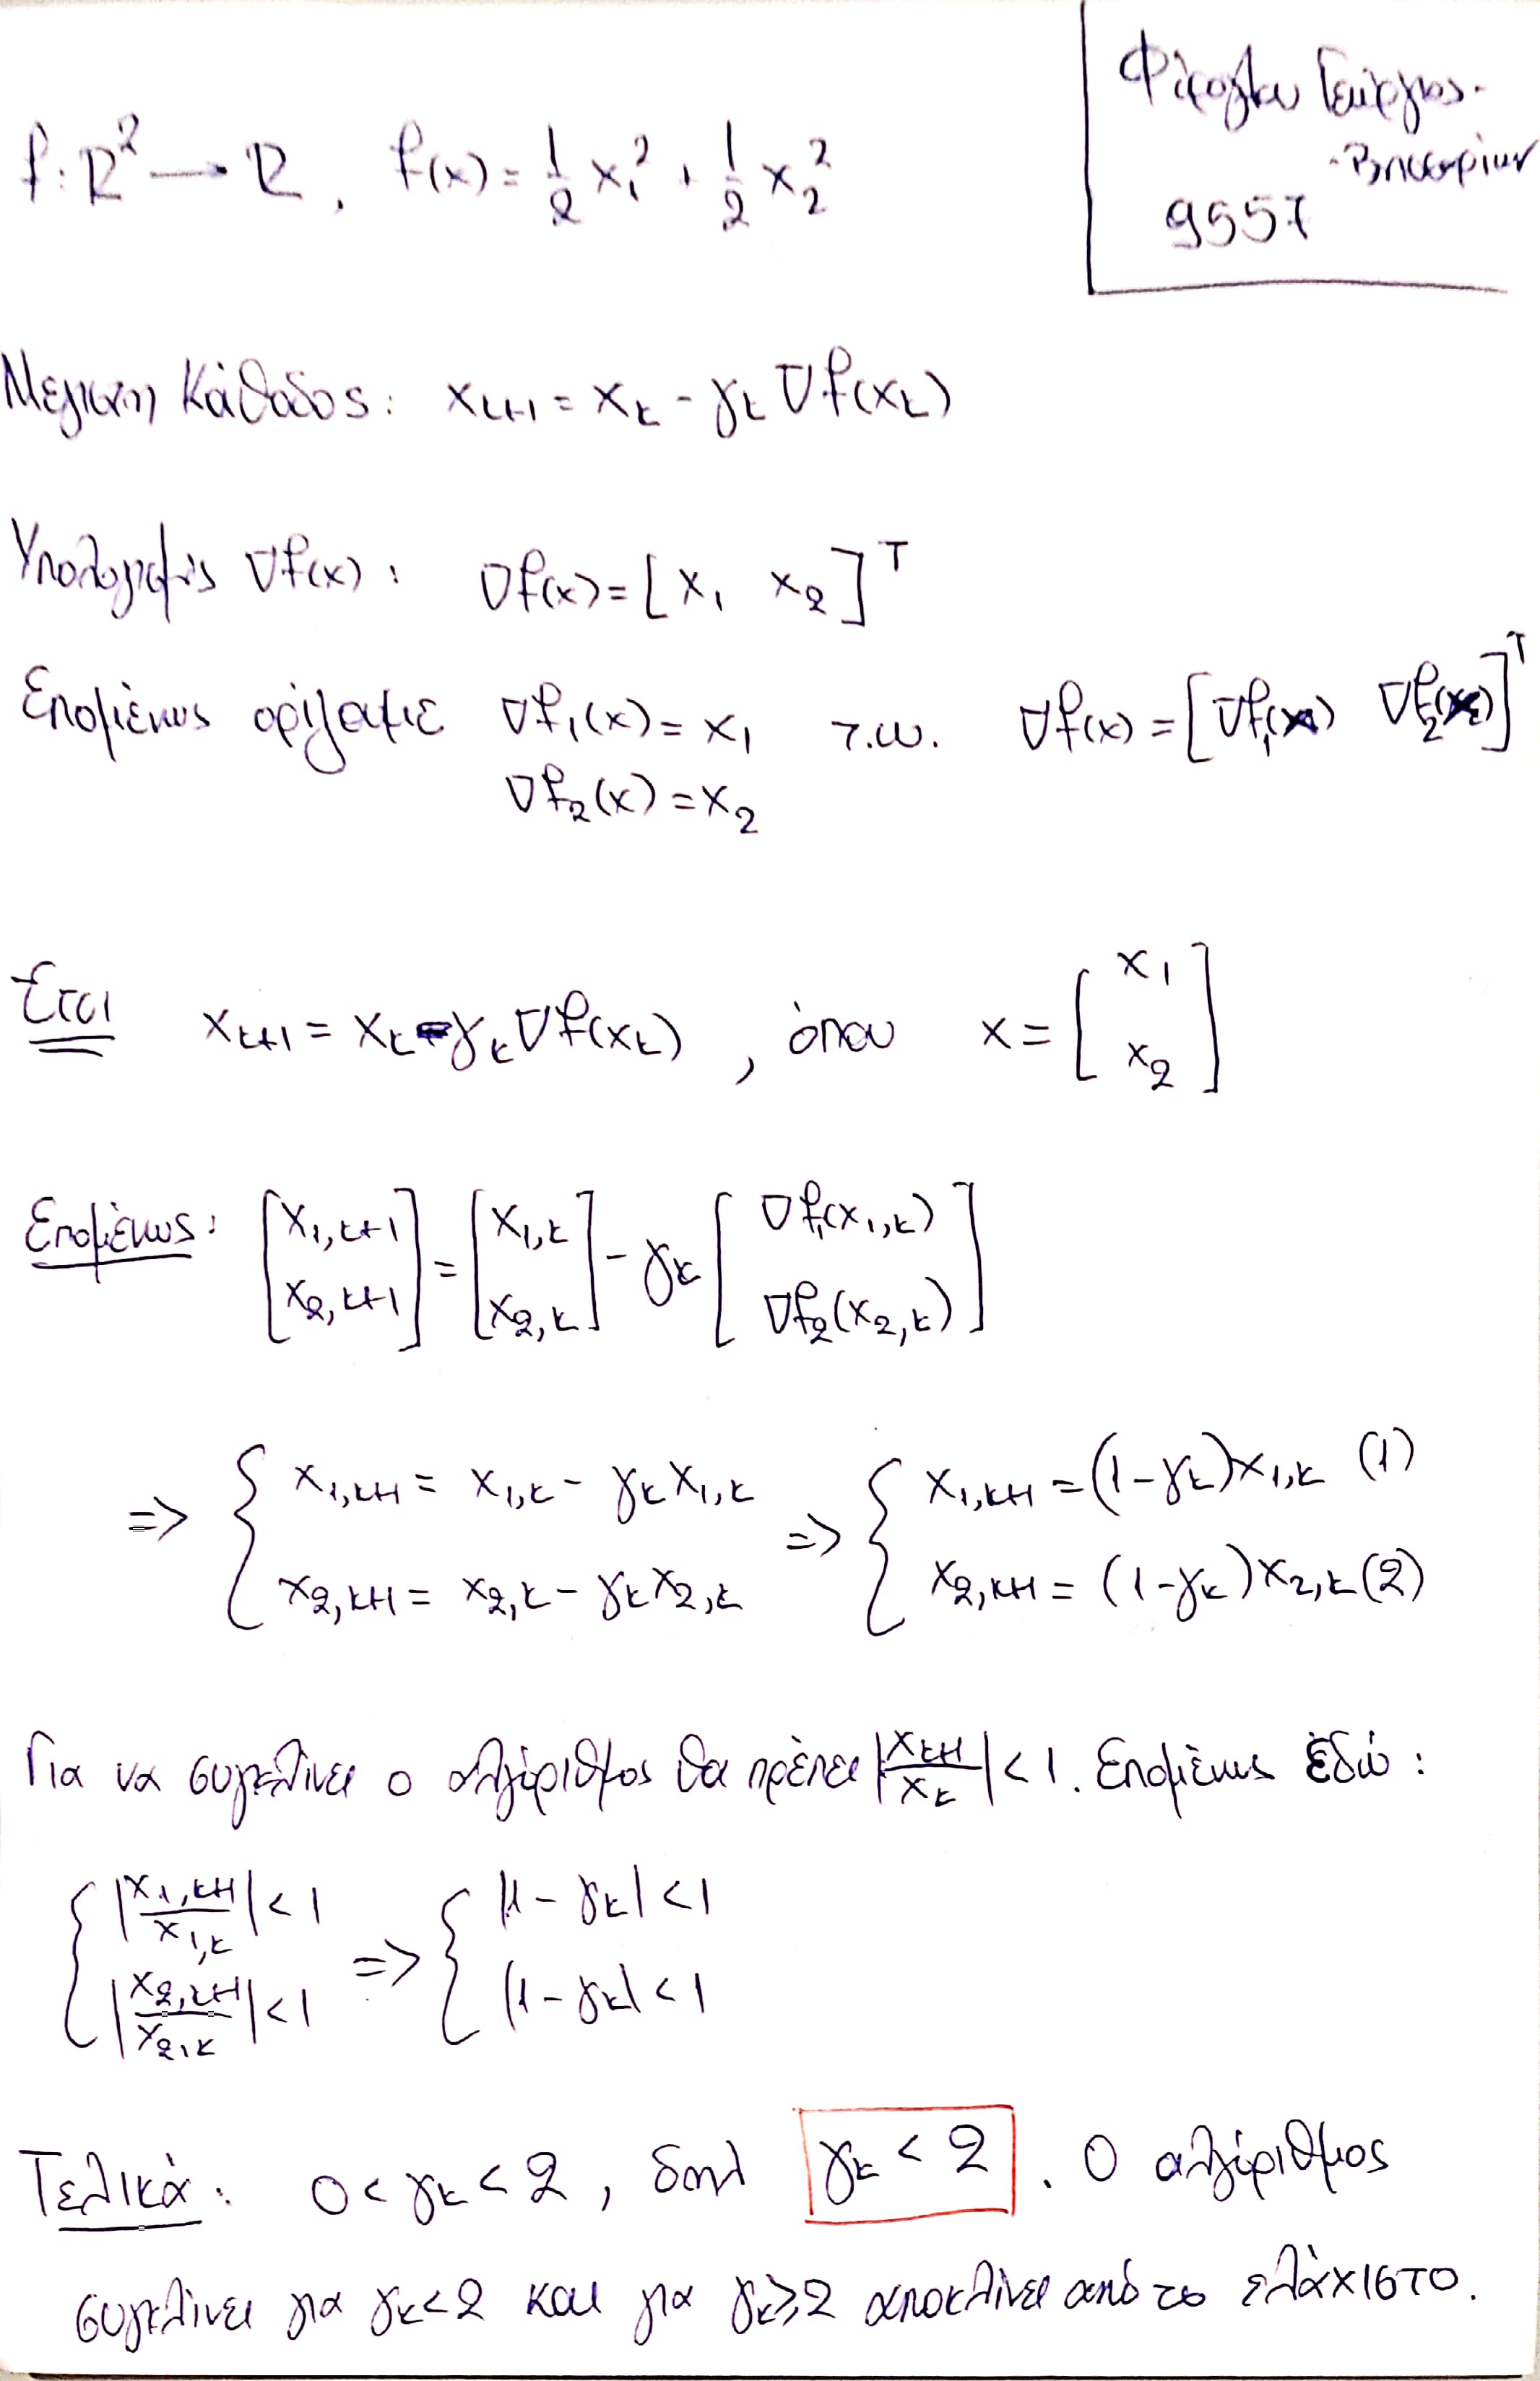 Φίφογλου Γεώργιος-
-Βησσαρίων
9557
f: ℝ² → ℝ, f(x) = 1/2 x₁² + 1/2 x₂²
Μέγιστη Κάθοδος: xₖ₊₁ = xₖ - γₖ ∇f(xₖ)
Υπολογισμός ∇f(x): ∇f(x) = [x₁ x₂]ᵀ
Επομένως ορίζουμε ∇f₁(x) = x₁ τ.ω. ∇f(x) = [∇f₁(x) ∇f₂(x)]ᵀ
∇f₂(x) = x₂
Έτσι xₖ₊₁ = xₖ - γₖ ∇f(xₖ), όπου x = [x₁ x₂]
Επομένως: [x₁,ₖ₊₁ x₂,ₖ₊₁] = [x₁,ₖ x₂,ₖ] - γₖ [∇f₁(x₁,ₖ) ∇f₂(x₂,ₖ)]
=> { x₁,ₖ₊₁ = x₁,ₖ - γₖ x₁,ₖ => { x₁,ₖ₊₁ = (1-γₖ)x₁,ₖ (1)
x₂,ₖ₊₁ = x₂,ₖ - γₖ x₂,ₖ x₂,ₖ₊₁ = (1-γₖ)x₂,ₖ (2)
Για να συγκλίνει ο αλγόριθμος θα πρέπει |xₖ₊₁/xₖ| < 1. Επομένως εδώ:
{ |x₁,ₖ₊₁/x₁,ₖ| < 1 => { |1-γₖ| < 1
|x₂,ₖ₊₁/x₂,ₖ| < 1 |1-γₖ| < 1
Τελικά: 0 < γₖ < 2, δηλ γₖ < 2. Ο αλγόριθμος
συγκλίνει για γₖ < 2 και για γₖ ≥ 2 αποκλίνει από το ελάχιστο.